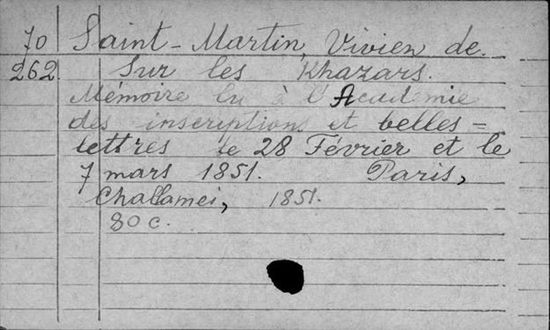 70 Saint-Martin, Vivien de.
262. Sur les Khazars.
Mémoire lu à l'Académie
des inscriptions et belles=
lettres le 28 Février et le
7 mars 1851. Paris,
Challamel, 1851.
80 c.